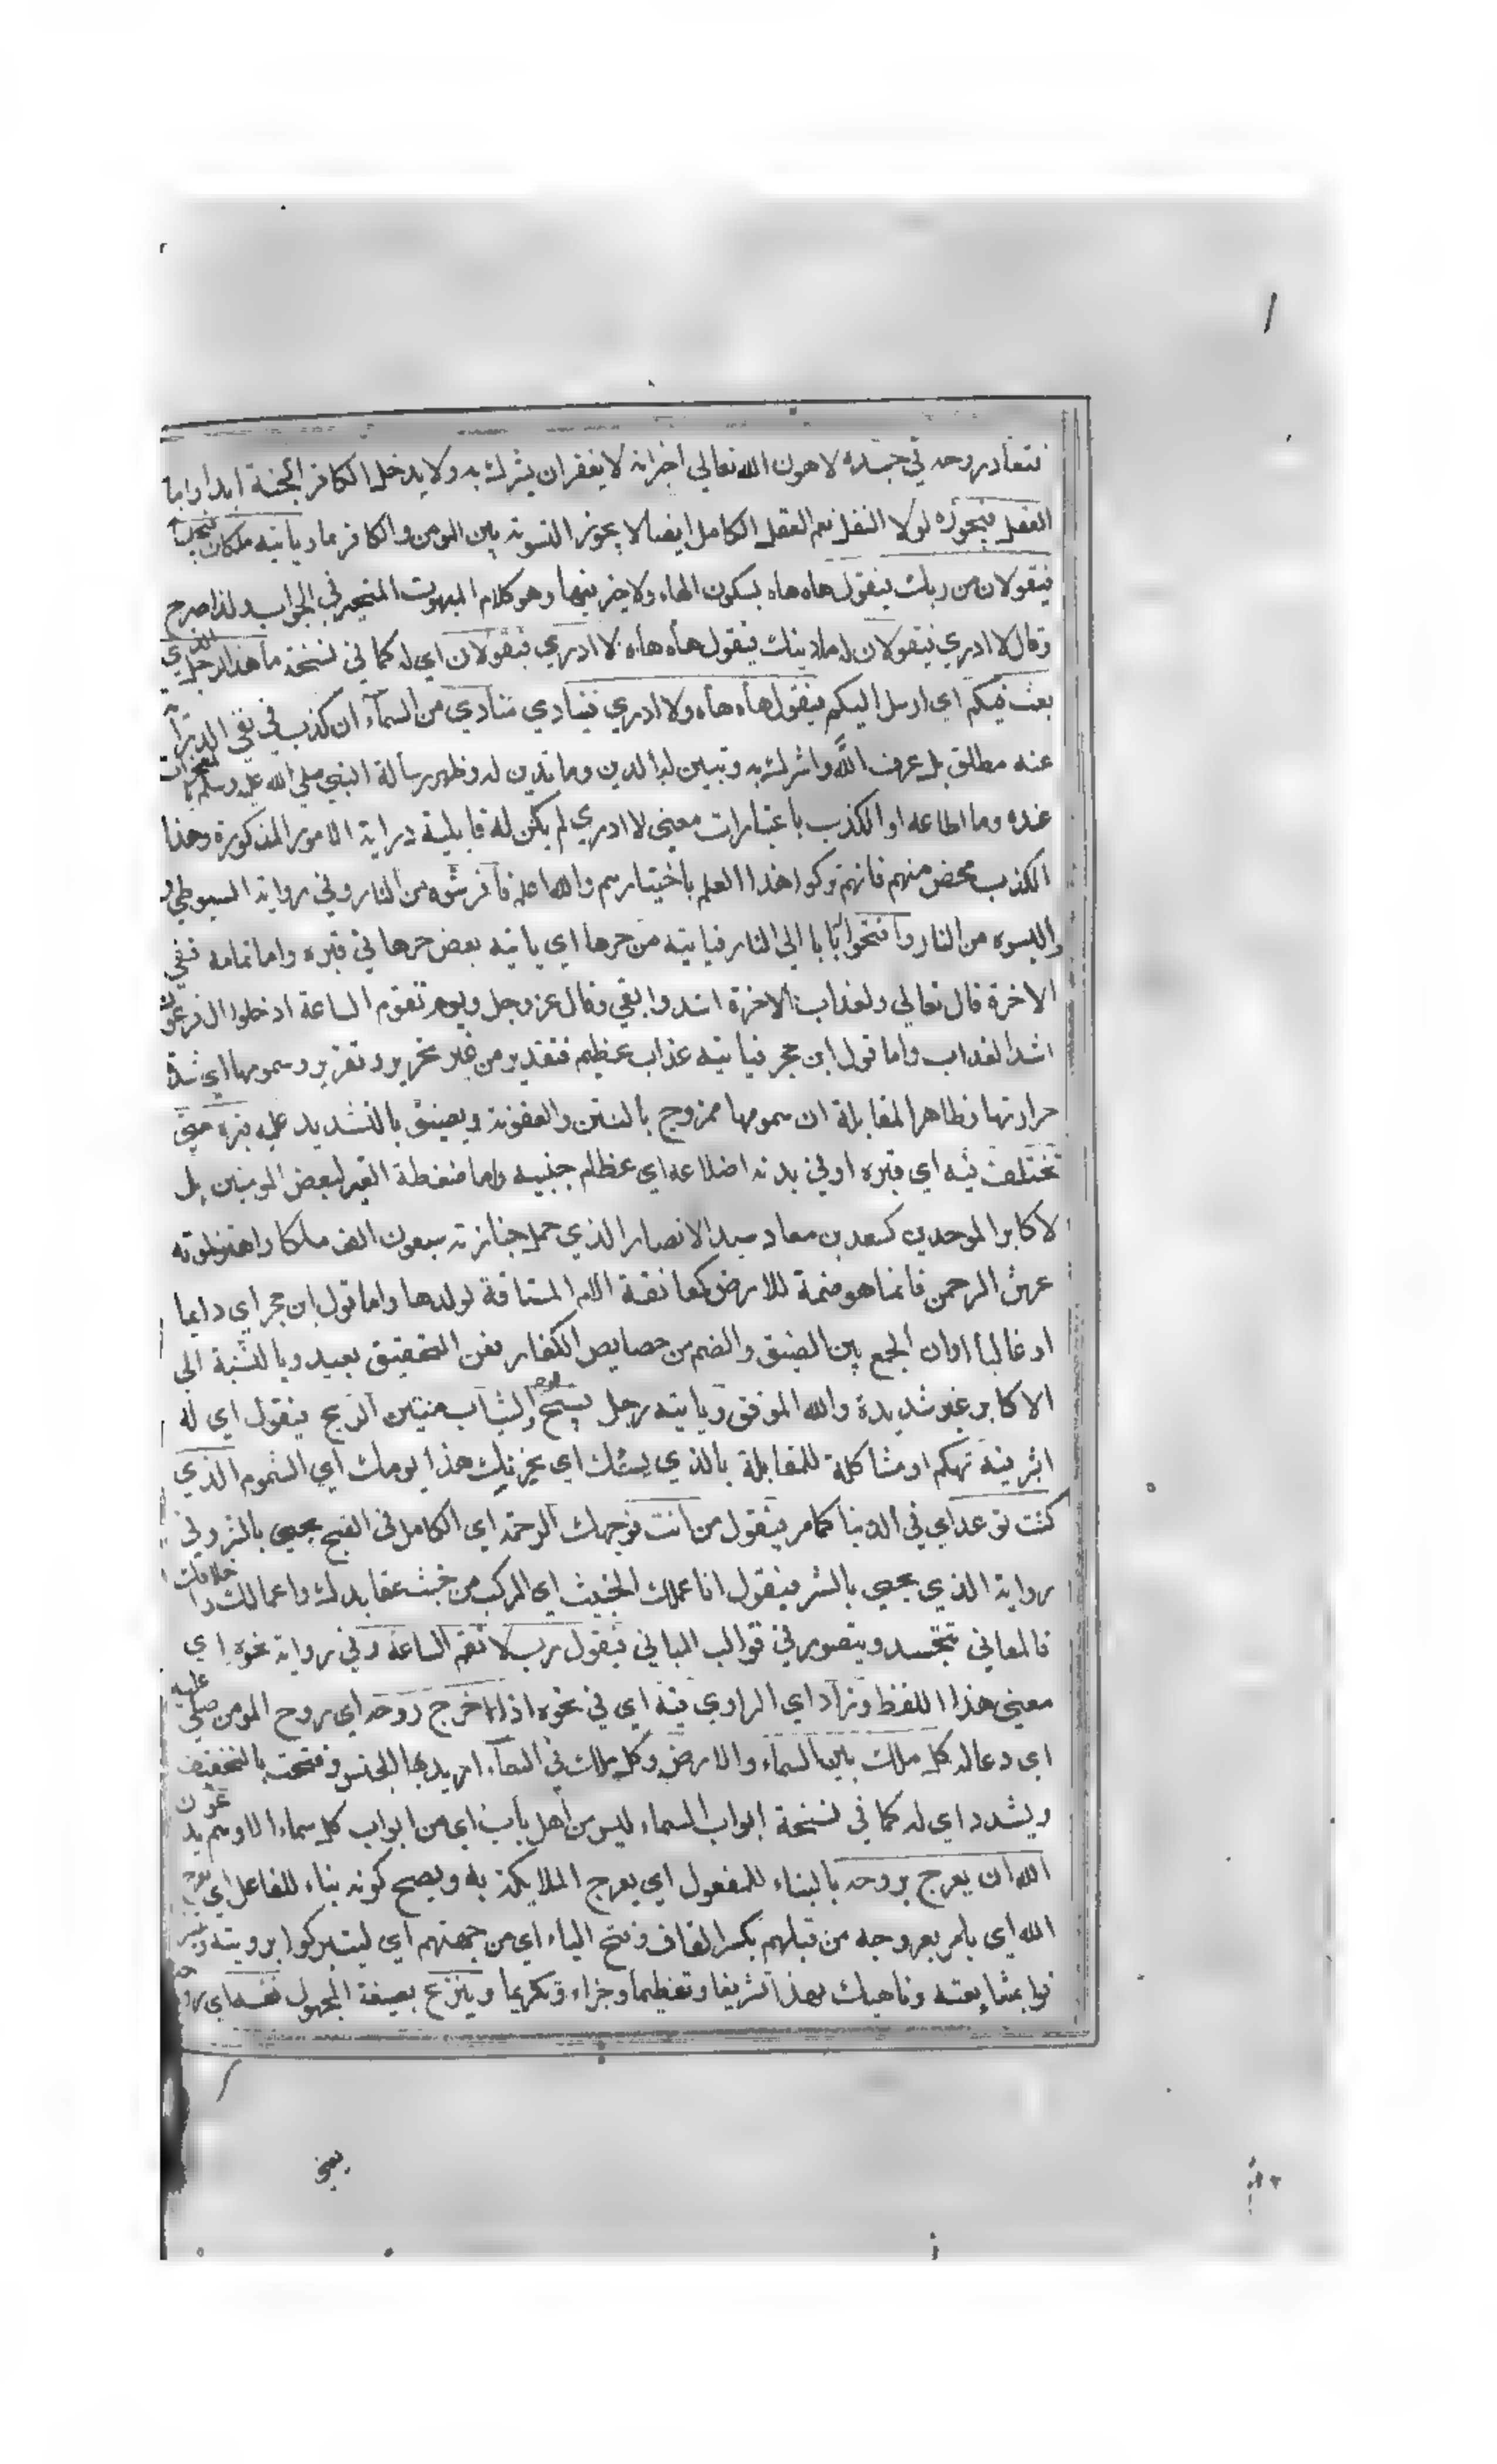 فتعاد روحه في جسده لا هون الله تعالى اخبرانه لا يغفر ان يشرك به ولا يدخل الكافر الجنة ابدا واما
العقل فيجوزه لولا النقل نعم العقل الكامل ايضا لا يجوز التسوية بين المومن والكافر بما وياتيه ملكان فيجلسانه
فيقولان من ربك فيقول هاه هاه بسكون الهاء ولا يغر بينهما وهو كلام المبهوت المتحير في الجواب لذا صرح
وقال لا ادري فيقولان له ما دينك فيقول هاه هاه لا ادري فيقولان اي له كما في نسخة ما هذا الرجل الذي
بعث فيكم اي ارسل اليكم فيقول هاه هاه ولا ادري فينادي مناد من السماء ان كذب في نفي الدراية
عنه مطلق بل عرف الله واشرك به وتبين له الدين وما تدين له وظهر رسالة النبي صلى الله عليه وسلم بالمعجزات
عنده وما اطاعه او الكذب باعتبار ان معنى لا ادري لم يكن له قابلية دراية الامور المذكورة وهذا
الكذب محض منهم فانهم تركوا هذا العلم باختيارهم والله اعلم فافرشوه من النار وفي رواية السيوطي و
والبسوه من النار وافتحوا له بابا الى النار فياتيه من حرها اي ياتيه بعض حرها في قبره واما تمامه ففي
الاخرة قال تعالى ولعذاب الاخرة اشد وابقى وقال عز وجل ويوم تقوم الساعة ادخلوا ال فرعون
اشد العذاب واما قول ابن حجر فياتيه عذاب عظيم فتقدير من غير تحرير وتقرير وسمومها اي شدة
حرارتها وظاهر المقابلة ان سمومها ممزوج بالنتن والعفونة ويضيق بالتشديد عليه قبره حتى
تختلف فيه اي قبره او في بدنه اضلاعه اي عظام جنبيه واما ضغطة القبر لبعض المومنين بل
لاكابر الموحدين كسعد بن معاد سيد الانصار الذي حمل جنازته سبعون الف ملكا واهتز لموته
عرش الرحمن فانما هو ضمة للارض كمعانقة الام المشتاقة لولدها واما قول ابن حجر اي دايما
او غالبا او ان الجمع بين الضيق والضم من خصايص الكفار فعن التحقيق بعيد وبالنسبة الى
الاكابر غير شديدة والله الموفق وياتيه رجل قبيح الوجه قبيح الثياب منتن الريح فيقول اي له
ابشر فيه تهكم او مشاكلة للمقابلة بالذي يسئك اي يحزنك هذا يومك اي الشموم الذي
كنت توعد اي في الدنيا كما مر فيقول من انت فوجهك الوجه اي الكامل في القبح يجيى بالشر وفي
رواية الذي يجيى بالشر فيقول انا عملك الخبيث اي المركب من خبث عقايدك واعمالك واخلاقك
فالمعاني تتجسد ويتصور في قوالب المباني فيقول رب لا تقم الساعة وفي رواية نحوه اي
معنى هذا اللفظ وزاد اي الراوي فيه اي في نحوه اذا خرج روحه اي روح المومن صلى عليه
اي دعا له كل ملك بين السماء والارض وكل ملك في السماء اريد بها الجنس وفتحت بالتخفيف
ويشدد اي له كما في نسخة ابواب السماء ليس من اهل باب اي من ابواب كل سماء الا وهم يدعون
الله ان يعرج بروحه بالبناء للمفعول اي يعرج الملايكة به ويصح كونه بناء للفاعل اي يعرج
الله اي يامر بعروجه من قبلهم بكسر القاف وفتح الباء اي من جهتهم اي ليتبركوا برويته
وناهيك بهذا تشريفا وتعظيما وجزاء وتكريما وينزع بصيغة المجهول نفسه اي روحه
يعني